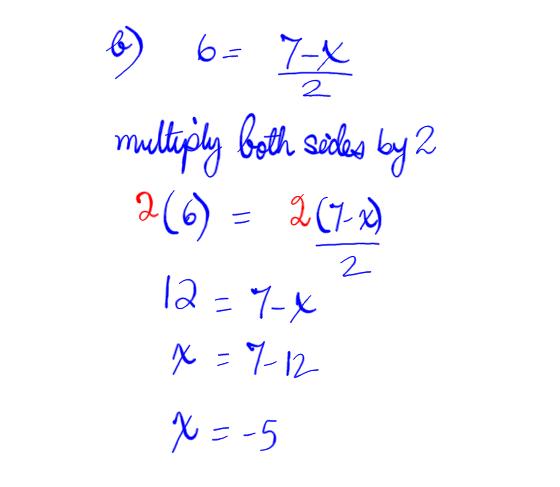 b) 6 = (7-x)/2
multiply both sides by 2
2(6) = 2(7-x)/2
12 = 7-x
x = 7-12
x = -5